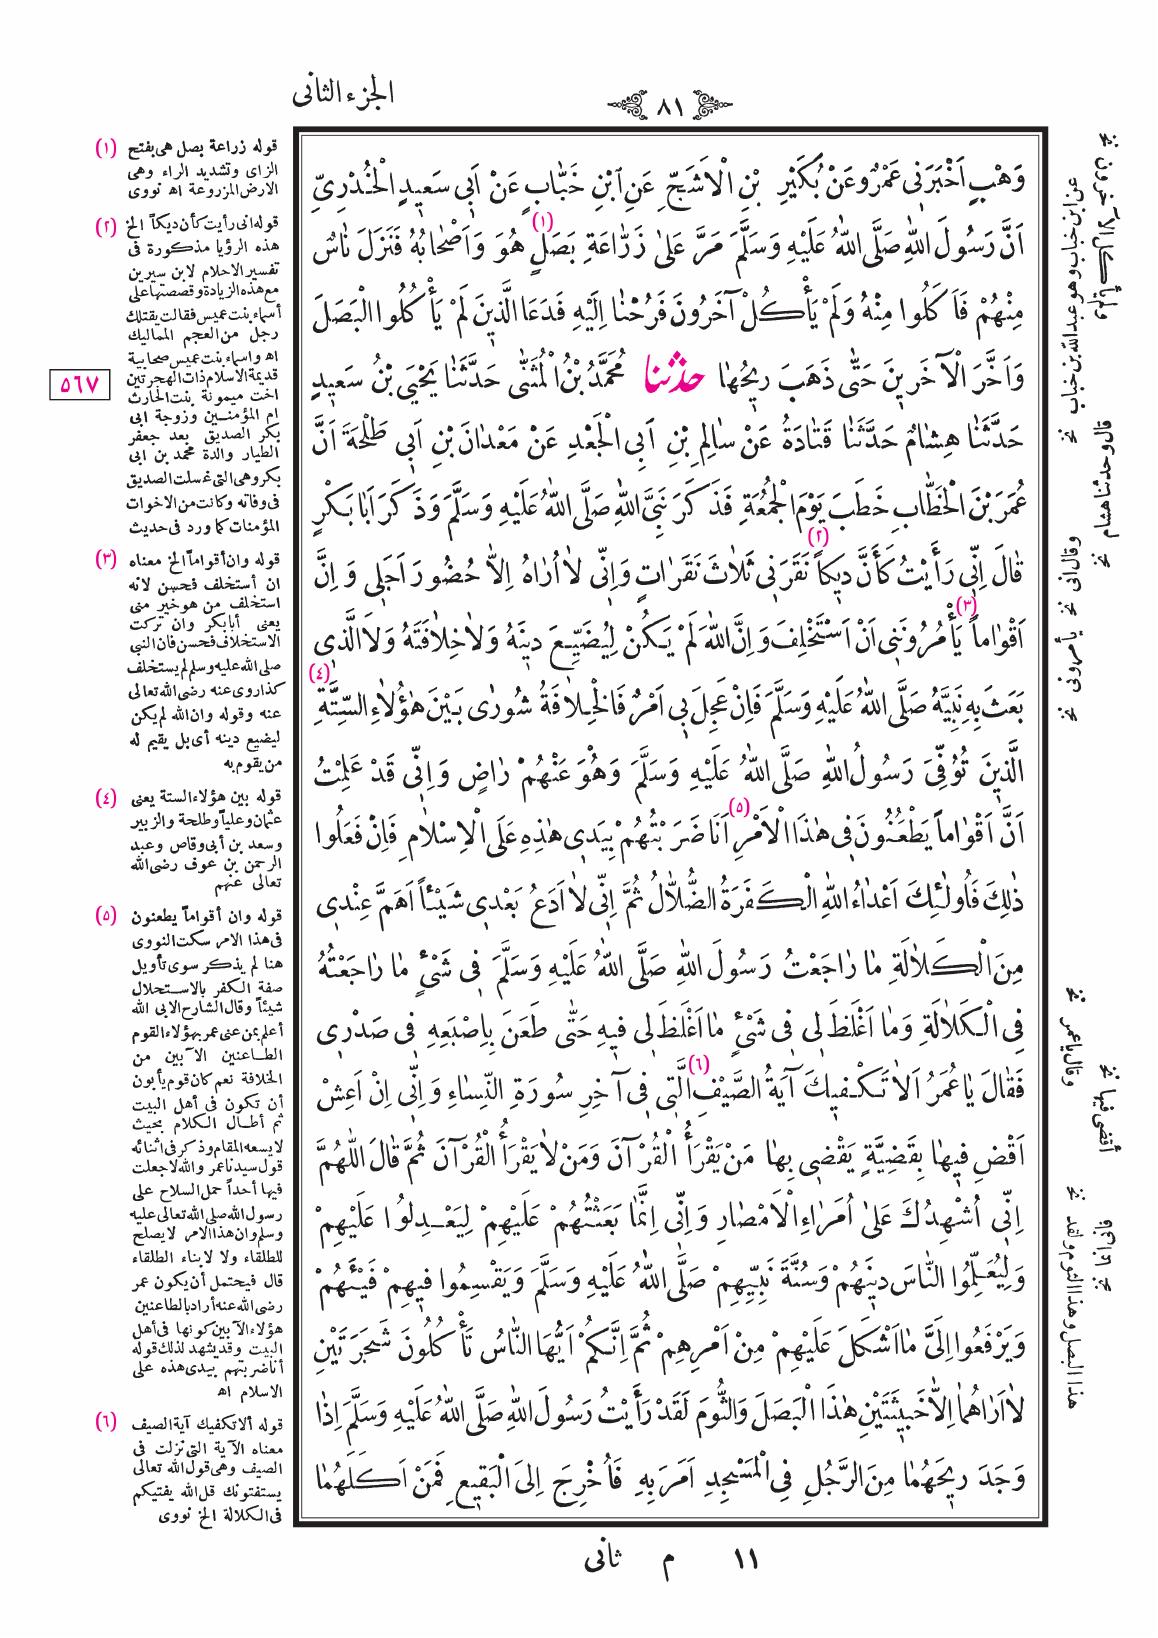 الجزء الثانى
٨١
وَهْبٍ اَخْبَرَنِى عَمْرٌو عَنْ بُكَيْرِ بْنِ الْاَشَجِّ عَنِ ابْنِ خَبَّابٍ عَنْ اَبِى سَعِيدٍ الْخُدْرِىِّ
اَنَّ رَسُولَ اللّٰهِ صَلَّى اللّٰهُ عَلَيْهِ وَسَلَّمَ مَرَّ عَلٰى زَرَّاعَةِ بَصَلٍ (١) هُوَ وَاَصْحَابُهُ فَنَزَلَ نَاسٌ
مِنْهُمْ فَاَكَلُوا مِنْهُ وَلَمْ يَأْكُلْ آخَرُونَ فَرُحْنَا اِلَيْهِ فَدَعَا الَّذِينَ لَمْ يَأْكُلُوا الْبَصَلَ
وَاَخَّرَ الْآخَرِينَ حَتّٰى ذَهَبَ رِيحُهَا حدثنا مُحَمَّدُ بْنُ الْمُثَنّٰى حَدَّثَنَا يَحْيَى بْنُ سَعِيدٍ
حَدَّثَنَا هِشَامٌ حَدَّثَنَا قَتَادَةُ عَنْ سَالِمِ بْنِ اَبِى الْجَعْدِ عَنْ مَعْدَانَ بْنِ اَبِى طَلْحَةَ اَنَّ
عُمَرَ بْنَ الْخَطَّابِ خَطَبَ يَوْمَ الْجُمُعَةِ فَذَكَرَ نَبِىَّ اللّٰهِ صَلَّى اللّٰهُ عَلَيْهِ وَسَلَّمَ وَذَكَرَ اَبَا بَكْرٍ
قَالَ اِنِّى رَأَيْتُ كَأَنَّ دِيكاً (٢) نَقَرَنِى ثَلَاثَ نَقَرَاتٍ وَاِنِّى لَا اُرَاهُ اِلَّا حُضُورَ اَجَلِى وَاِنَّ
اَقْوَاماً (٣) يَأْمُرُونَنِى اَنْ اَسْتَخْلِفَ وَاِنَّ اللّٰهَ لَمْ يَكُنْ لِيُضَيِّعَ دِينَهُ وَلَا خِلَافَتَهُ وَلَا الَّذِى
بَعَثَ بِهِ نَبِيَّهُ صَلَّى اللّٰهُ عَلَيْهِ وَسَلَّمَ فَاِنْ عَجِلَ بِى اَمْرٌ فَالْخِلَافَةُ شُورٰى بَيْنَ هٰؤُلَاءِ السِّتَّةِ (٤)
الَّذِينَ تُوُفِّىَ رَسُولُ اللّٰهِ صَلَّى اللّٰهُ عَلَيْهِ وَسَلَّمَ وَهُوَ عَنْهُمْ رَاضٍ وَاِنِّى قَدْ عَلِمْتُ
اَنَّ اَقْوَاماً يَطْعَنُونَ فِى هٰذَا الْاَمْرِ (٥) اَنَا ضَرَبْتُهُمْ بِيَدِى هٰذِهِ عَلَى الْاِسْلَامِ فَاِنْ فَعَلُوا
ذٰلِكَ فَاُولٰئِكَ اَعْدَاءُ اللّٰهِ الْكَفَرَةُ الضُّلَّالُ ثُمَّ اِنِّى لَا اَدَعُ بَعْدِى شَيْئاً اَهَمَّ عِنْدِى
مِنَ الْكَلَالَةِ مَا رَاجَعْتُ رَسُولَ اللّٰهِ صَلَّى اللّٰهُ عَلَيْهِ وَسَلَّمَ فِى شَىْءٍ مَا رَاجَعْتُهُ
فِى الْكَلَالَةِ وَمَا اَغْلَظَ لِى فِى شَىْءٍ مَا اَغْلَظَ لِى فِيهِ حَتّٰى طَعَنَ بِاِصْبَعِهِ فِى صَدْرِى
فَقَالَ يَا عُمَرُ اَلَا تَكْفِيكَ آيَةُ الصَّيْفِ (٦) الَّتِى فِى آخِرِ سُورَةِ النِّسَاءِ وَاِنِّى اِنْ اَعِشْ
اَقْضِ فِيهَا بِقَضِيَّةٍ يَقْضِى بِهَا مَنْ يَقْرَأُ الْقُرْآنَ وَمَنْ لَا يَقْرَأُ الْقُرْآنَ ثُمَّ قَالَ اللّٰهُمَّ
اِنِّى اُشْهِدُكَ عَلٰى اُمَرَاءِ الْاَمْصَارِ وَاِنِّى اِنَّمَا بَعَثْتُهُمْ عَلَيْهِمْ لِيَعْدِلُوا عَلَيْهِمْ
وَلِيُعَلِّمُوا النَّاسَ دِينَهُمْ وَسُنَّةَ نَبِيِّهِمْ صَلَّى اللّٰهُ عَلَيْهِ وَسَلَّمَ وَيَقْسِمُوا فِيهِمْ فَيْئَهُمْ
وَيَرْفَعُوا اِلَىَّ مَا اَشْكَلَ عَلَيْهِمْ مِنْ اَمْرِهِمْ ثُمَّ اِنَّكُمْ اَيُّهَا النَّاسُ تَأْكُلُونَ شَجَرَتَيْنِ
لَا اَرَاهُمَا اِلَّا خَبِيثَتَيْنِ هٰذَا الْبَصَلَ وَالثُّومَ لَقَدْ رَأَيْتُ رَسُولَ اللّٰهِ صَلَّى اللّٰهُ عَلَيْهِ وَسَلَّمَ اِذَا
وَجَدَ رِيحَهُمَا مِنَ الرَّجُلِ فِى الْمَسْجِدِ اَمَرَ بِهِ فَاُخْرِجَ اِلَى الْبَقِيعِ فَمَنْ اَكَلَهُمَا
ولم يأكل الآخرون نخ
عن ابن خباب وهو عبد الله بن خباب نخ
قال وحدثنا هشام نخ
وقال انى نخ يأمرونى نخ
وقال يا عمر نخ
أقضى فيها نخ
هذا البصل وهذا الثوم ولقد نخ
(١) قوله زراعة بصل هى بفتح
الزاى وتشديد الراء وهى
الارض المزروعة اه نووى
(٢) قوله انى رأيت كأن ديكاً الخ
هذه الرؤيا مذكورة فى
تفسير الاحلام لابن سيرين
مع هذه الزيادة وقصصتها على
أسماء بنت عميس فقالت يقتلك
رجل من العجم المماليك
اه واسماء بنت عميس صحابية
قديمة الاسلام ذات الهجرتين
اخت ميمونة بنت الحارث
ام المؤمنين وزوجة ابى
بكر الصديق بعد جعفر
الطيار والدة محمد بن ابى
بكر وهى التى غسلت الصديق
فى وفاته وكانت من الاخوات
المؤمنات كما ورد فى حديث
٥٦٧
(٣) قوله وان أقواماً الخ معناه
ان أستخلف فحسن لانه
استخلف من هو خير منى
يعنى أبا بكر وان تركت
الاستخلاف فحسن فان النبى
صلى الله عليه وسلم لم يستخلف
كذا روى عنه رضى الله تعالى
عنه وقوله وان الله لم يكن
ليضيع دينه أى بل يقيم له
من يقوم به
(٤) قوله بين هؤلاء الستة يعنى
عثمان وعلياً وطلحة والزبير
وسعد بن أبى وقاص وعبد
الرحمن بن عوف رضى الله
تعالى عنهم
(٥) قوله وان أقواماً يطعنون
فى هذا الامر سكت النووى
هنا لم يذكر سوى تأويل
صفة الكفر بالاستحلال
شيئاً وقال الشارح الابى الله
أعلم بمن عنى عمر بهؤلاء القوم
الطاعنين الآبين من
الخلافة نعم كان قوم يأبون
أن تكون فى أهل البيت
ثم أطال الكلام بحيث
لا يسعه المقام وذكر فى اثنائه
قول سيدنا عمر والله لا جعلت
فيها أحداً حمل السلاح على
رسول الله صلى الله تعالى عليه
وسلم وان هذا الامر لا يصلح
للطلقاء ولا لابناء الطلقاء
قال فيحتمل أن يكون عمر
رضى الله عنه أراد بالطاعنين
هؤلاء الآبين كونها فى أهل
البيت وقد يشهد لذلك قوله
أنا ضربتهم بيدى هذه على
الاسلام اه
(٦) قوله ألا تكفيك آية الصيف
معناه الآية التى نزلت فى
الصيف وهى قول الله تعالى
يستفتونك قل الله يفتيكم
فى الكلالة الخ نووى
١١ م ثانى